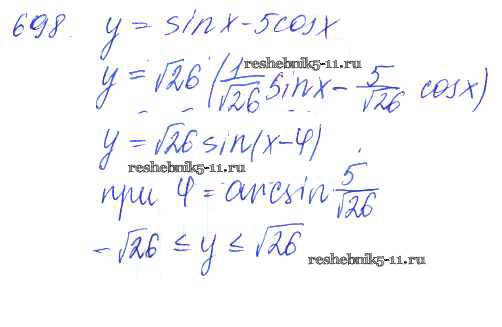 698. y = sinx - 5cosx
reshebnik5-11.ru
y = √26 (1/√26 sinx - 5/√26 cosx)
y = √26 sin(x - φ)
reshebnik5-11.ru
при φ = arcsin 5/√26
-√26 ≤ y ≤ √26
reshebnik5-11.ru